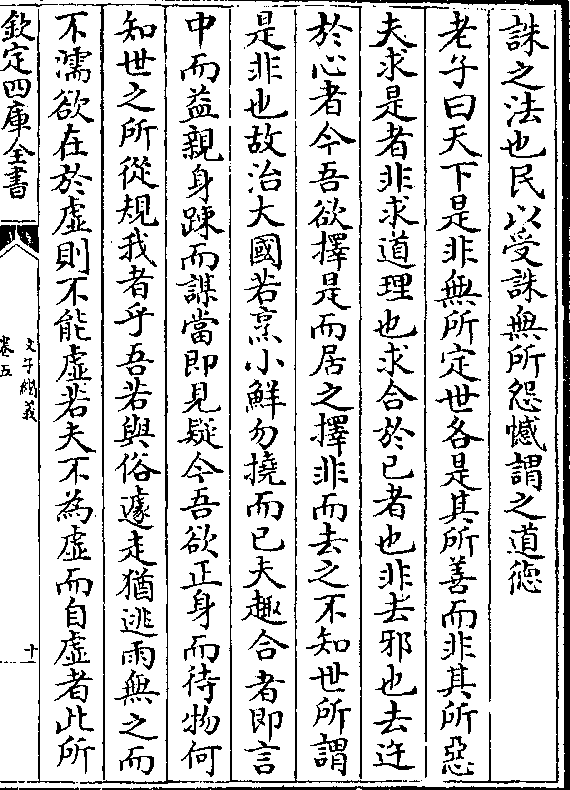 誅之法也民以受誅無所怨憾謂之道徳
老子曰天下是非無所定世各是其所善而非其所惡
夫求是者非求道理也求合於已者也非去邪也去迕
於心者今吾欲擇是而居之擇非而去之不知世所謂
是非也故治大國若烹小鮮勿撓而已夫趣合者即言
中而益親身疎而謀當即見疑今吾欲正身而待物何
知世之所從規我者乎吾若與俗遽走猶逃雨無之而
不濡欲在於虛則不能虛若夫不為虛而自虛者此所
欽定四庫全書
文子纘義
卷五
十一